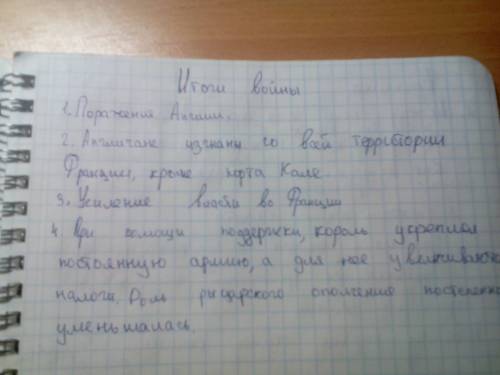 Итоги войны
1. Поражение Англии.
2. Англичане изгнаны со всей территории
Франции, кроме порта Кале
3. Усиление власти во Франции
4. При помощи поддержки, король укреплял
постоянную армию, а для нее увеличиваются
налоги. Роль рыцарского ополчения постепенно
уменьшалась.